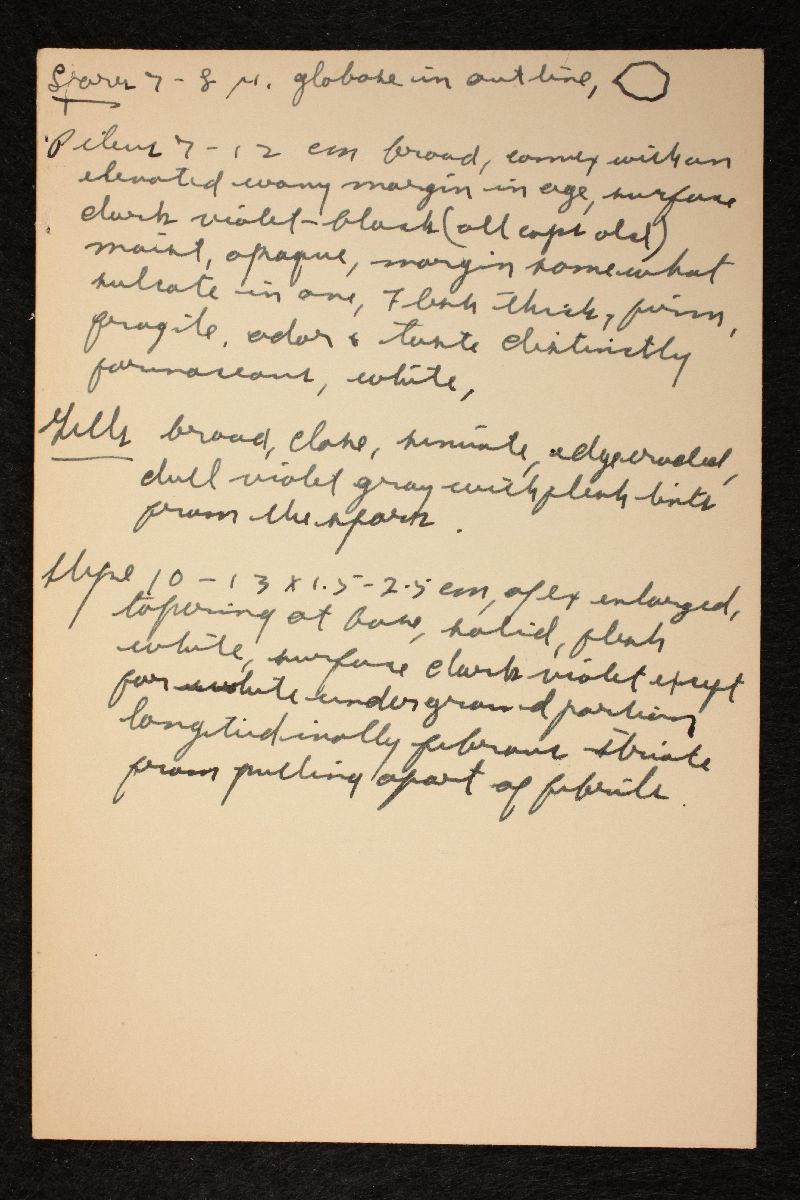 Spores 7-8 µ. globose in outline,
Pileus 7-12 cm broad, convex with an
elevated wavy margin in age, surface
dark violet-black (all caps old)
moist, opaque, margin somewhat
sulcate in one, Flesh thick, firm,
fragile, odor & taste distinctly
farinaceous, white,
Gills broad, close, sinuate, edge eroded,
dull violet gray with flesh tints
from the spores.
Stipe 10-13 x 1.5-2.5 cm, apex enlarged,
tapering at base, solid, flesh
white, surface dark violet except
for white underground portion
longitudinally fibrous striate
from pulling apart of fibrils.